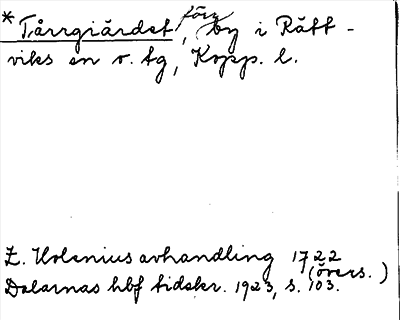 * Tårrgiärdet, förs. by i Rätt-
viks sn o. tg, Kopp. l.
Z. Holenius avhandling 1722
(övers.)
Dalarnas hbf tidskr. 1923, s. 103.